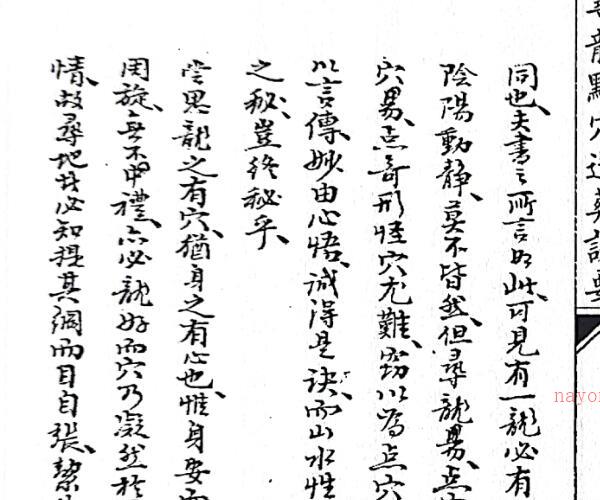 尋龍點穴造葬訣要
同也夫書之所言如此可見有一龍必有
陰陽動靜莫不皆然但尋龍易点
穴易点奇形怪穴尤難窃以為点穴
以言傳妙由心悟誠得是訣而山水性
之秘豈終秘乎
嘗思龍之有穴猶身之有心也惟身安而
周旋無不中禮亦必龍好而穴乃凝然於
情故尋地者必知提其綱而目自張挈
nayo